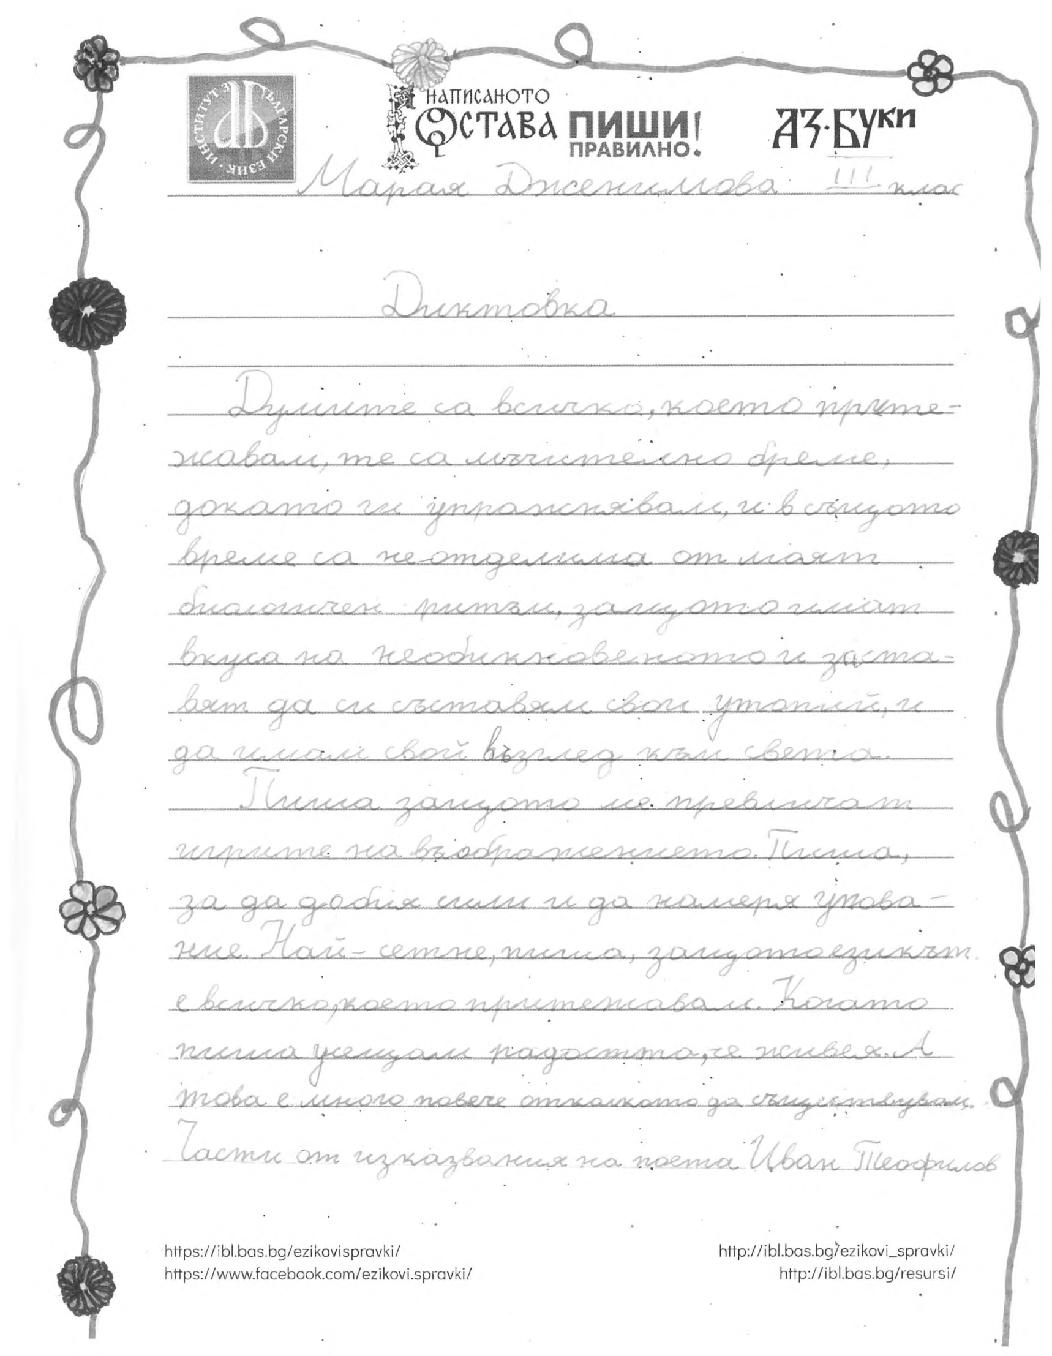 ИНСТИТУТ ЗА БЪЛГАРСКИ ЕЗИК
НАПИСАНОТО
ОСТАВА ПИШИ!
ПРАВИЛНО!
АЗ·БУКИ
Марая Дженимова III клас
Диктовка
Думите са всичко, което прите-
жавам, те са мъчително бреме,
докато ги упражнявам, и в същото
време са неотделима от моят
биологичен ритъм, защото имат
вкуса на необикновеното и заста-
вят да си съставям свои утопий, и
да имам свой възглед към света.
Пиша защото ме превличат
игрите на въображението. Пиша,
за да добия сили и да намеря упова-
ние. Най-сетне, пиша, защото езикът
е всичко, което притежавам. Когато
пиша усещам радостта, че живея. А
това е много повече отколкото да съществувам.
Части от изказвания на поета Иван Теофилов
https://ibl.bas.bg/ezikovispravki/
http://ibl.bas.bg/ezikovi_spravki/
https://www.facebook.com/ezikovi.spravki/
http://ibl.bas.bg/resursi/